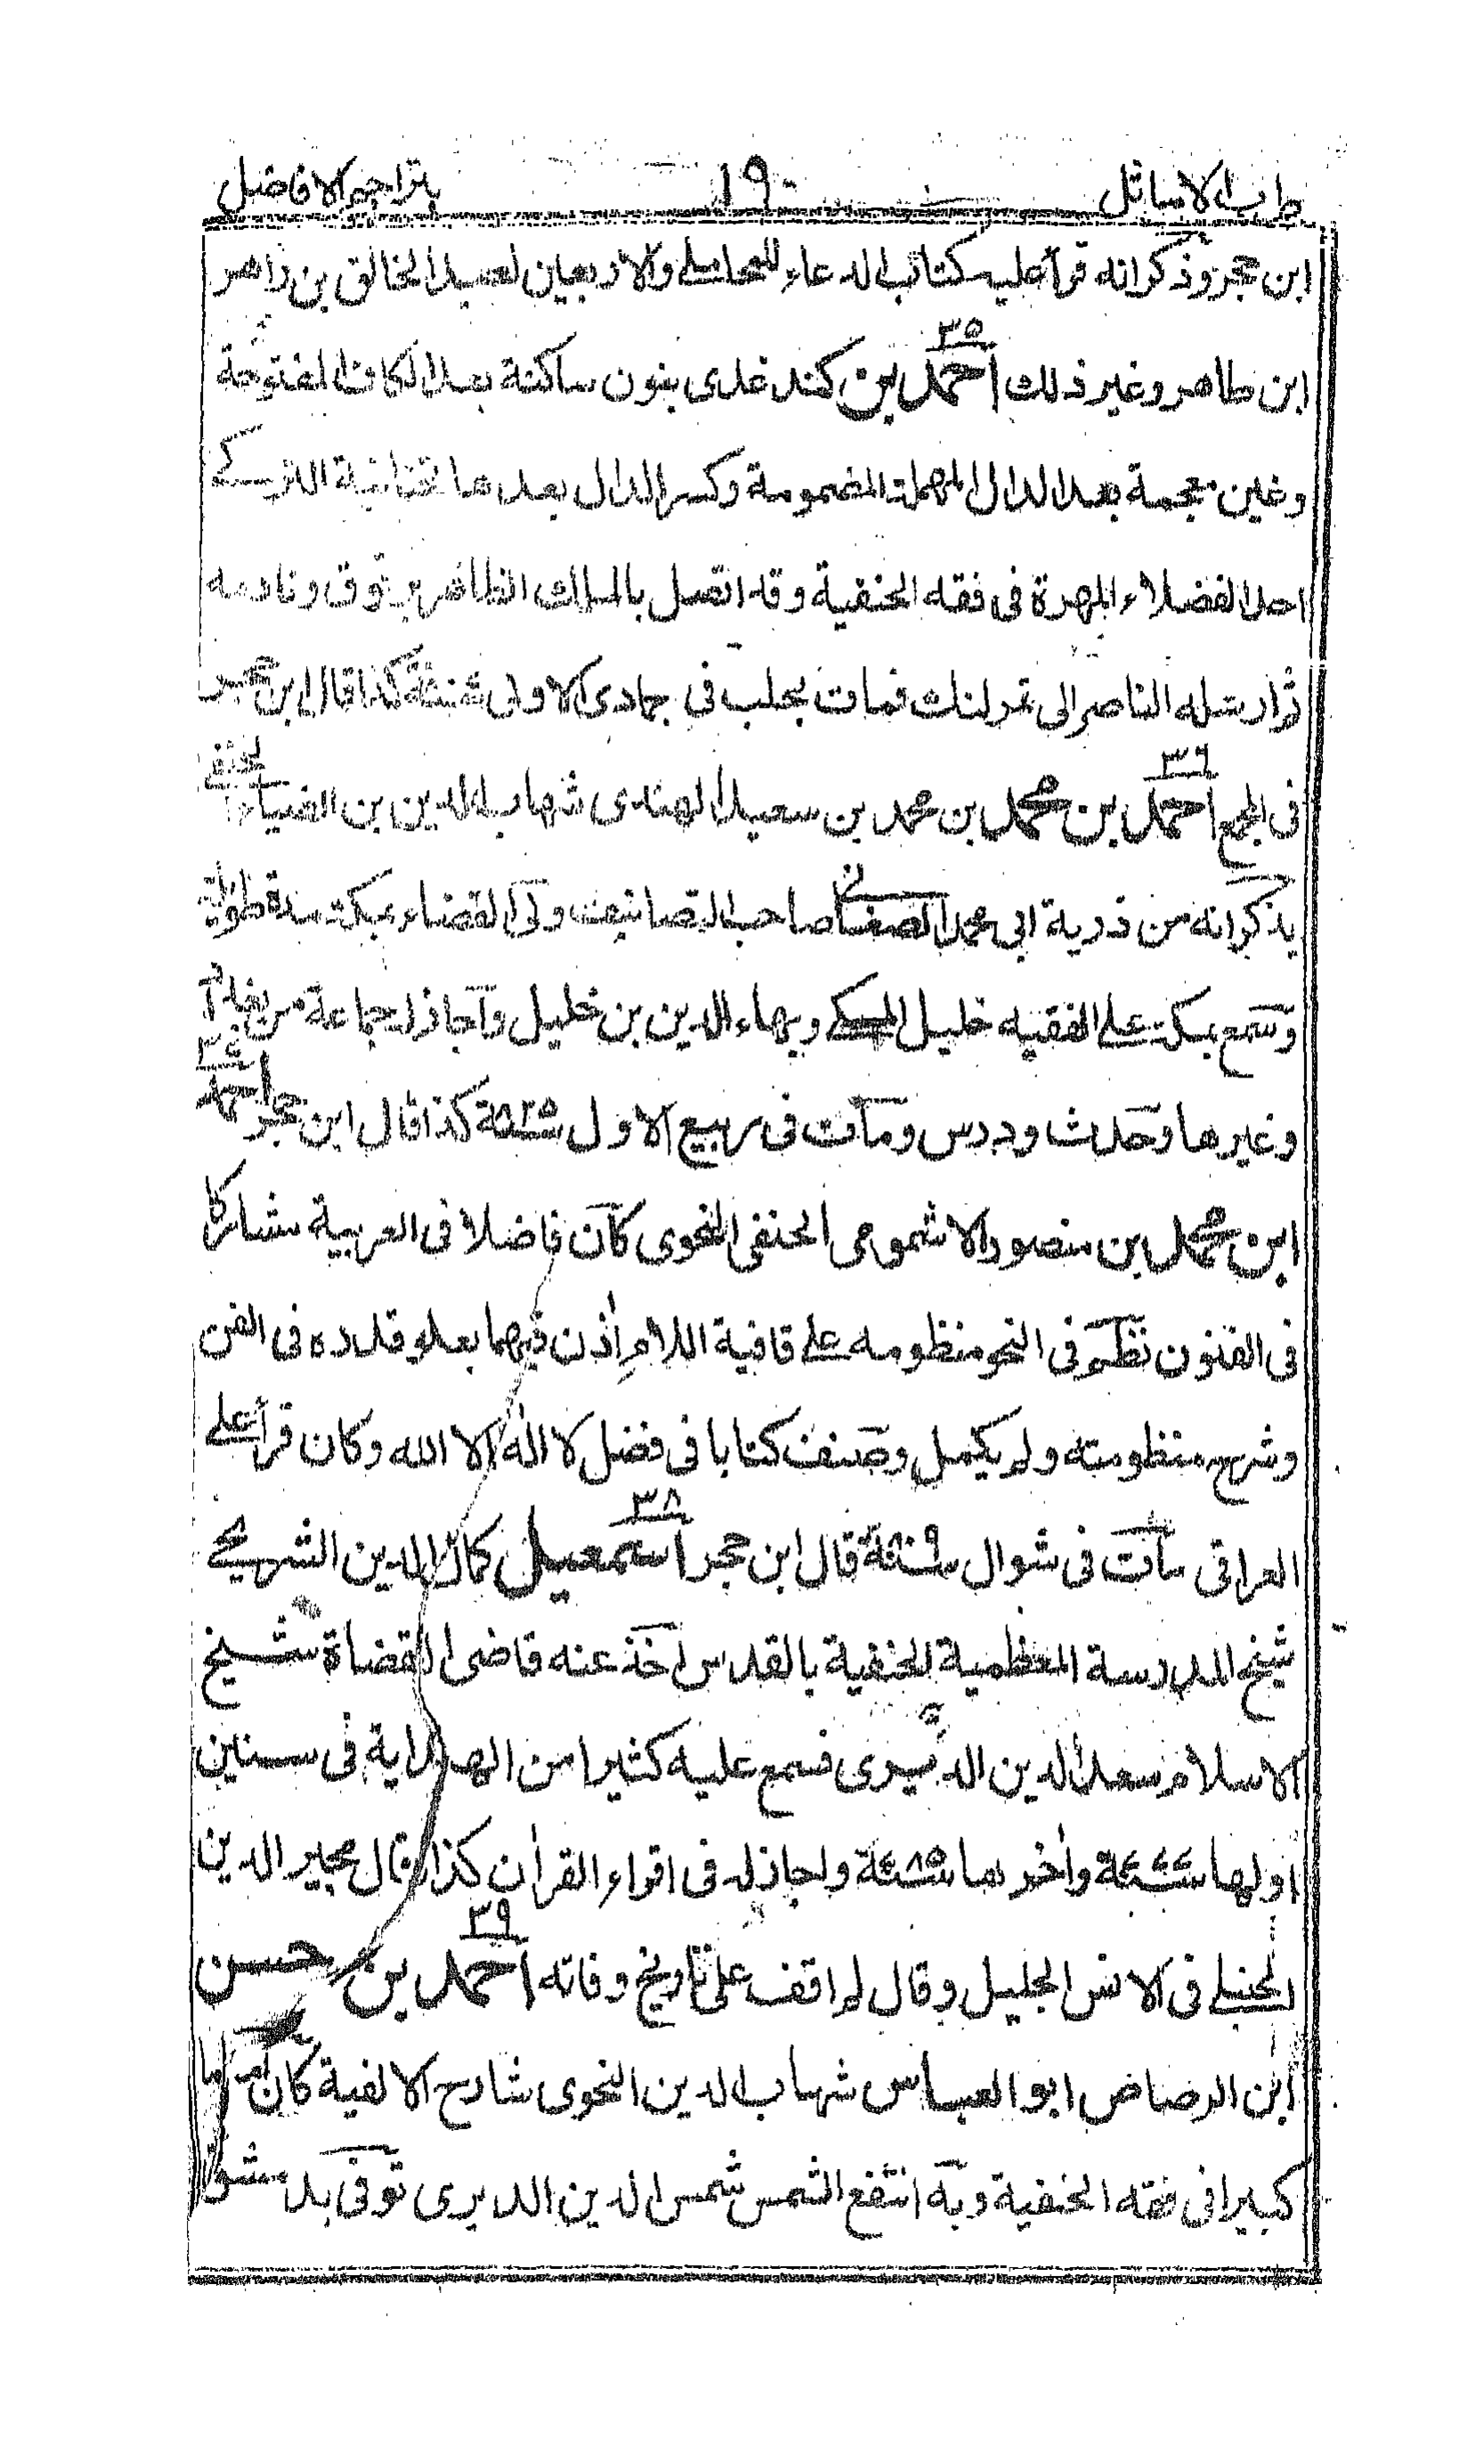 طرب الاماثل ١٩ بتراجم الافاضل
ابن حجر وذكر انه قرأ عليه كتاب الدعاء للمحاملي والاربعين لعبد الخالق بن زاهر
ابن طاهر وغير ذلك ٣٥ احمد بن كندغدى بنون ساكنة بعد الكاف المفتوحة
وغين معجمة بعد الدال المهملة المضمومة وكسر الدال بعدها تحتانية التركي
احد الفضلاء المهرة فى فقه الحنفية وقد اتصل بالملك الظاهر برقوق ونادمه
ثم ارسله الناصر الى تمرلنك فمات بحلب فى جمادى الاولى كذا قال ابن حجر
فى المجمع ٣٦ احمد بن محمد بن محمد بن سعيد الهندى شهاب الدين بن الضياء الحنفي
يذكر انه من ذرية ابى محمد الصغانى صاحب التصانيف ولى القضاء بمكة مدة طويلة
وسمع بمكة على الفقيه خليل المكي وبهاء الدين بن خليل واجاز له جماعة من بغداد
وغيرها وحدث ودرس ومات فى ربيع الاول سنة ٨٢٥ كذا قال ابن حجر ٣٧ احمد
ابن محمد بن منصور الاشموحى الحنفى النحوى كان فاضلا فى العربية مشاركا
فى الفنون نظم فى النحو منظومه على قافية اللام اذن فيهما بعلو قدره فى الفن
وشرح منظومته ولم يكمل وصنف كتابا فى فضل لا اله الا الله وكان قرأ على
العراقى مات فى شوال سنة ٨٠٩ قال ابن حجر ٣٨ اسمعيل كمال الدين الشريحي
شيخ المدرسة المعظمية الحنفية بالقدس اخذ عنه قاضى القضاة شيخ
الاسلام سعد الدين الديرى فسمع عليه كثيرا من الهداية فى سنين
اولها سنة ٧٧٧ واخرها سنة ٧٨٥ واجاز له فى اقراء القران كذا قال مجير الدين
الحنبلي فى الانس الجليل وقال لم اقف على تاريخ وفاته ٣٩ احمد بن حسن
ابن الرصاص ابو العباس شهاب الدين النحوى شارح الالفية كان اماما
كبيرا فى فقه الحنفية وبه انتفع الشمس شمس الدين الديرى توفى بدمشق